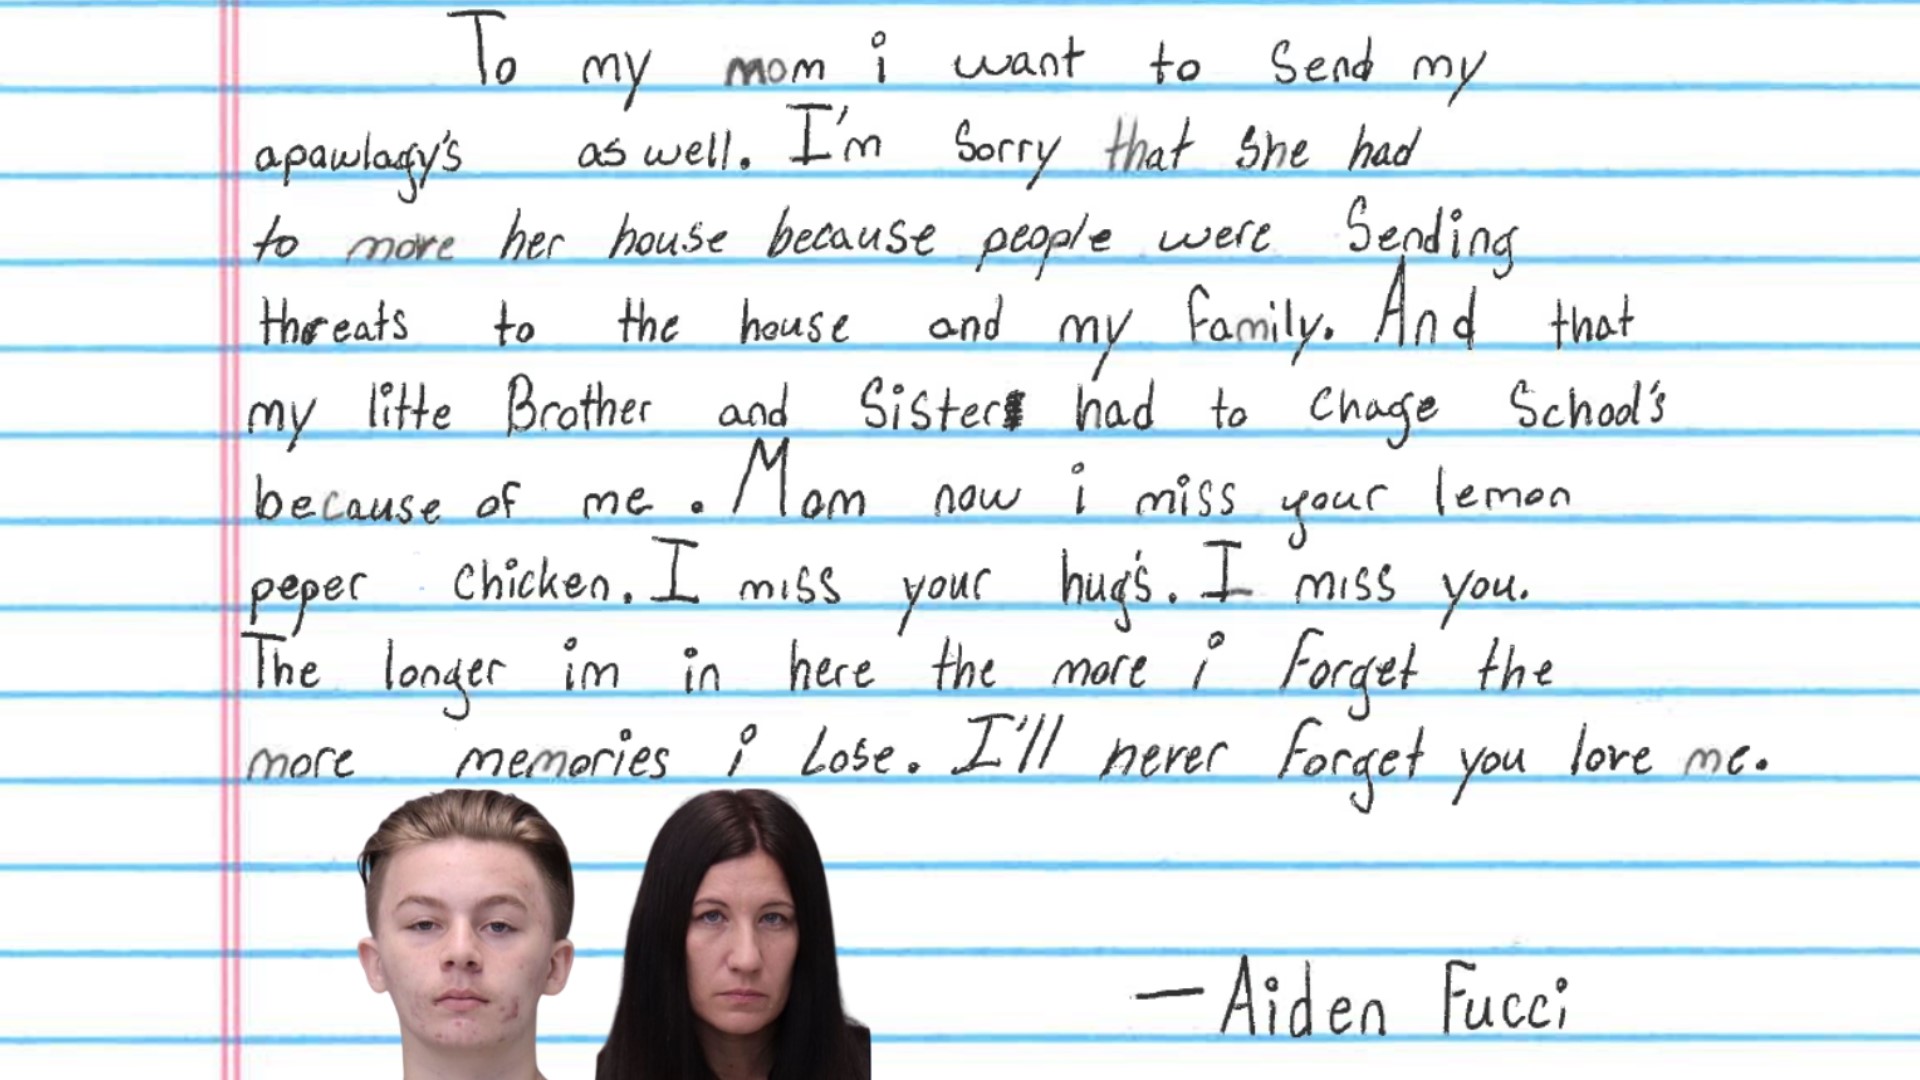 To my mom i want to Send my
apawlagy's as well. I'm Sorry that She had
to move her house because people were Sending
threats to the house and my family. And that
my litte Brother and Sister had to Chage School's
because of me. Mom now i miss your lemon
peper Chicken. I miss your hug's. I miss you.
The longer im in here the more i forget the
more memories i Lose. I'll never forget you love me.
— Aiden Fucci